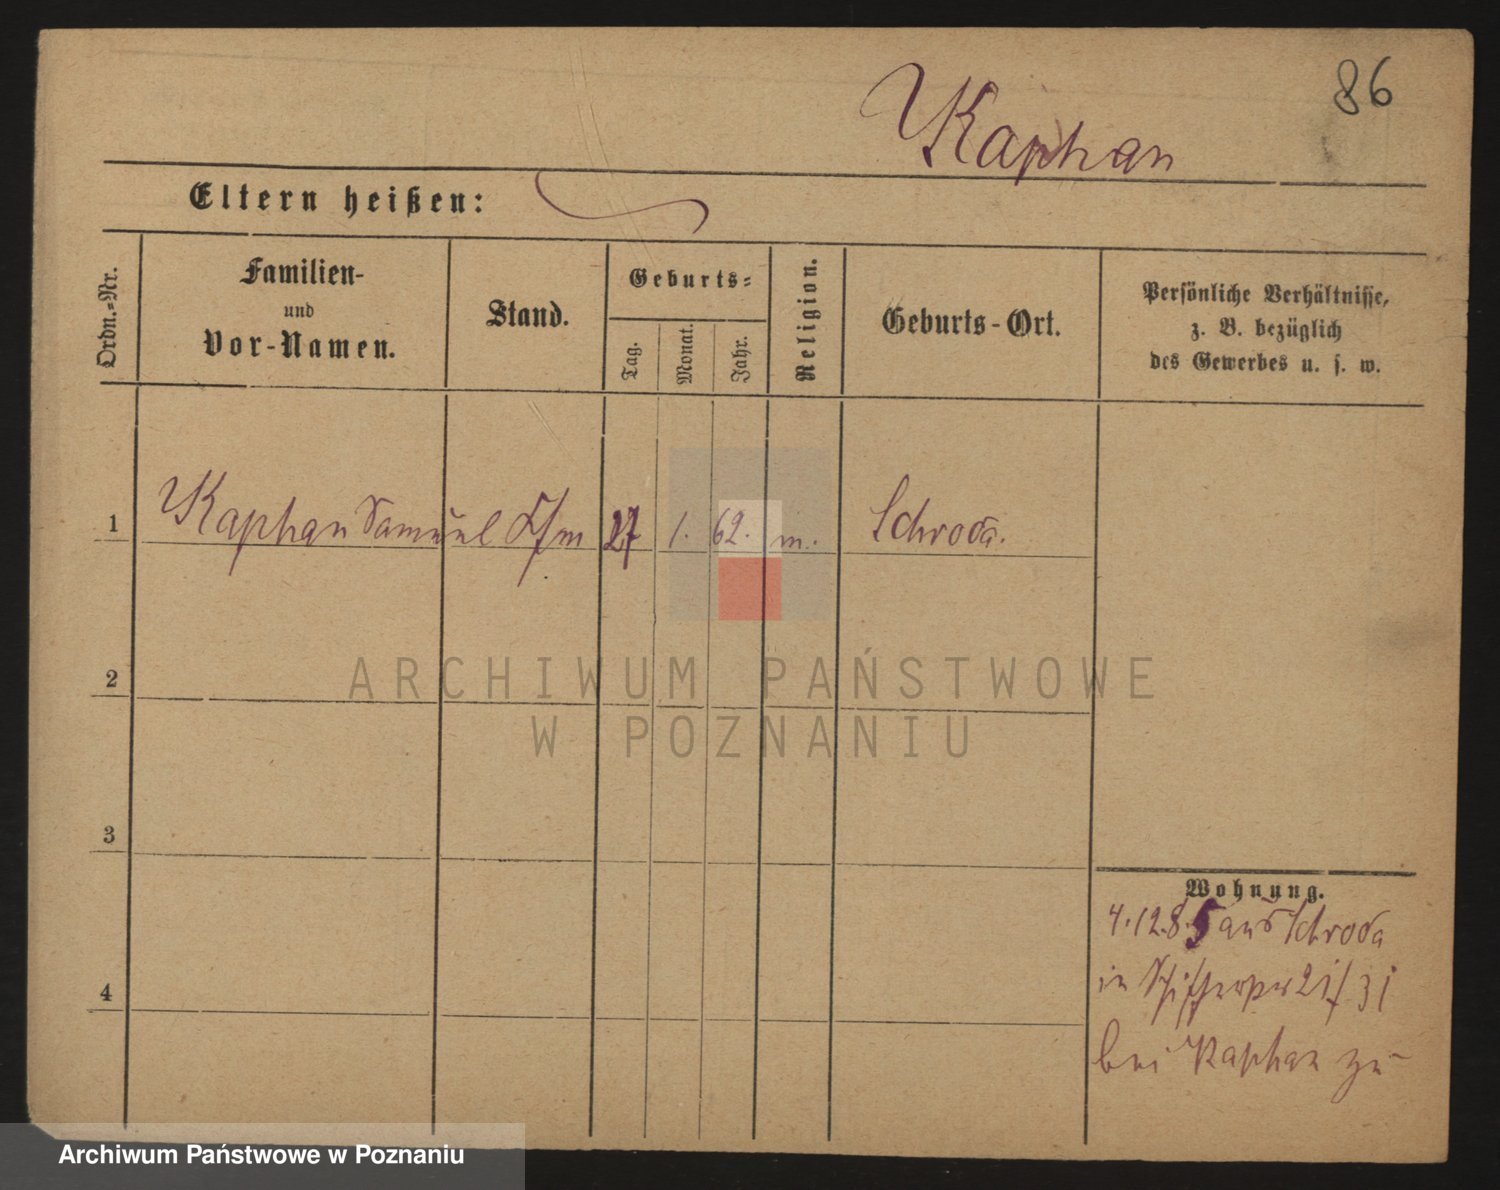 86
Kaphan
Eltern heißen:
Ordn.=Nr.
Familien-
und
Vor-Namen.
Stand.
Geburts=
Tag.
Monat.
Jahr.
Religion.
Geburts-Ort.
Persönliche Verhältnisse,
z. B. bezüglich
des Gewerbes u. s. w.
1 Kaphan Samuel Kfm 27 1. 62. m. Schroda.
2
3
4
Wohnung.
4.12.85 aus Schroda
in
bei Kaphan zu
ARCHIWUM PAŃSTWOWE
W POZNANIU
Archiwum Państwowe w Poznaniu